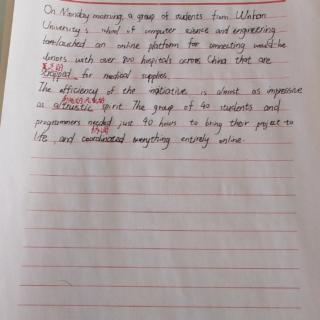 On Monday morning, a group of students from Wuhan
University's school of computer science and engineering
launched an online platform for connecting would-be
donors with over 800 hospitals across China that are
strapped for medical supplies.
The efficiency of the initiative is almost as impressive
as altruistic spirit. The group of 40 students and
programmers needed just 40 hours to bring their project to
协调
life, and coordinated everything entirely online.